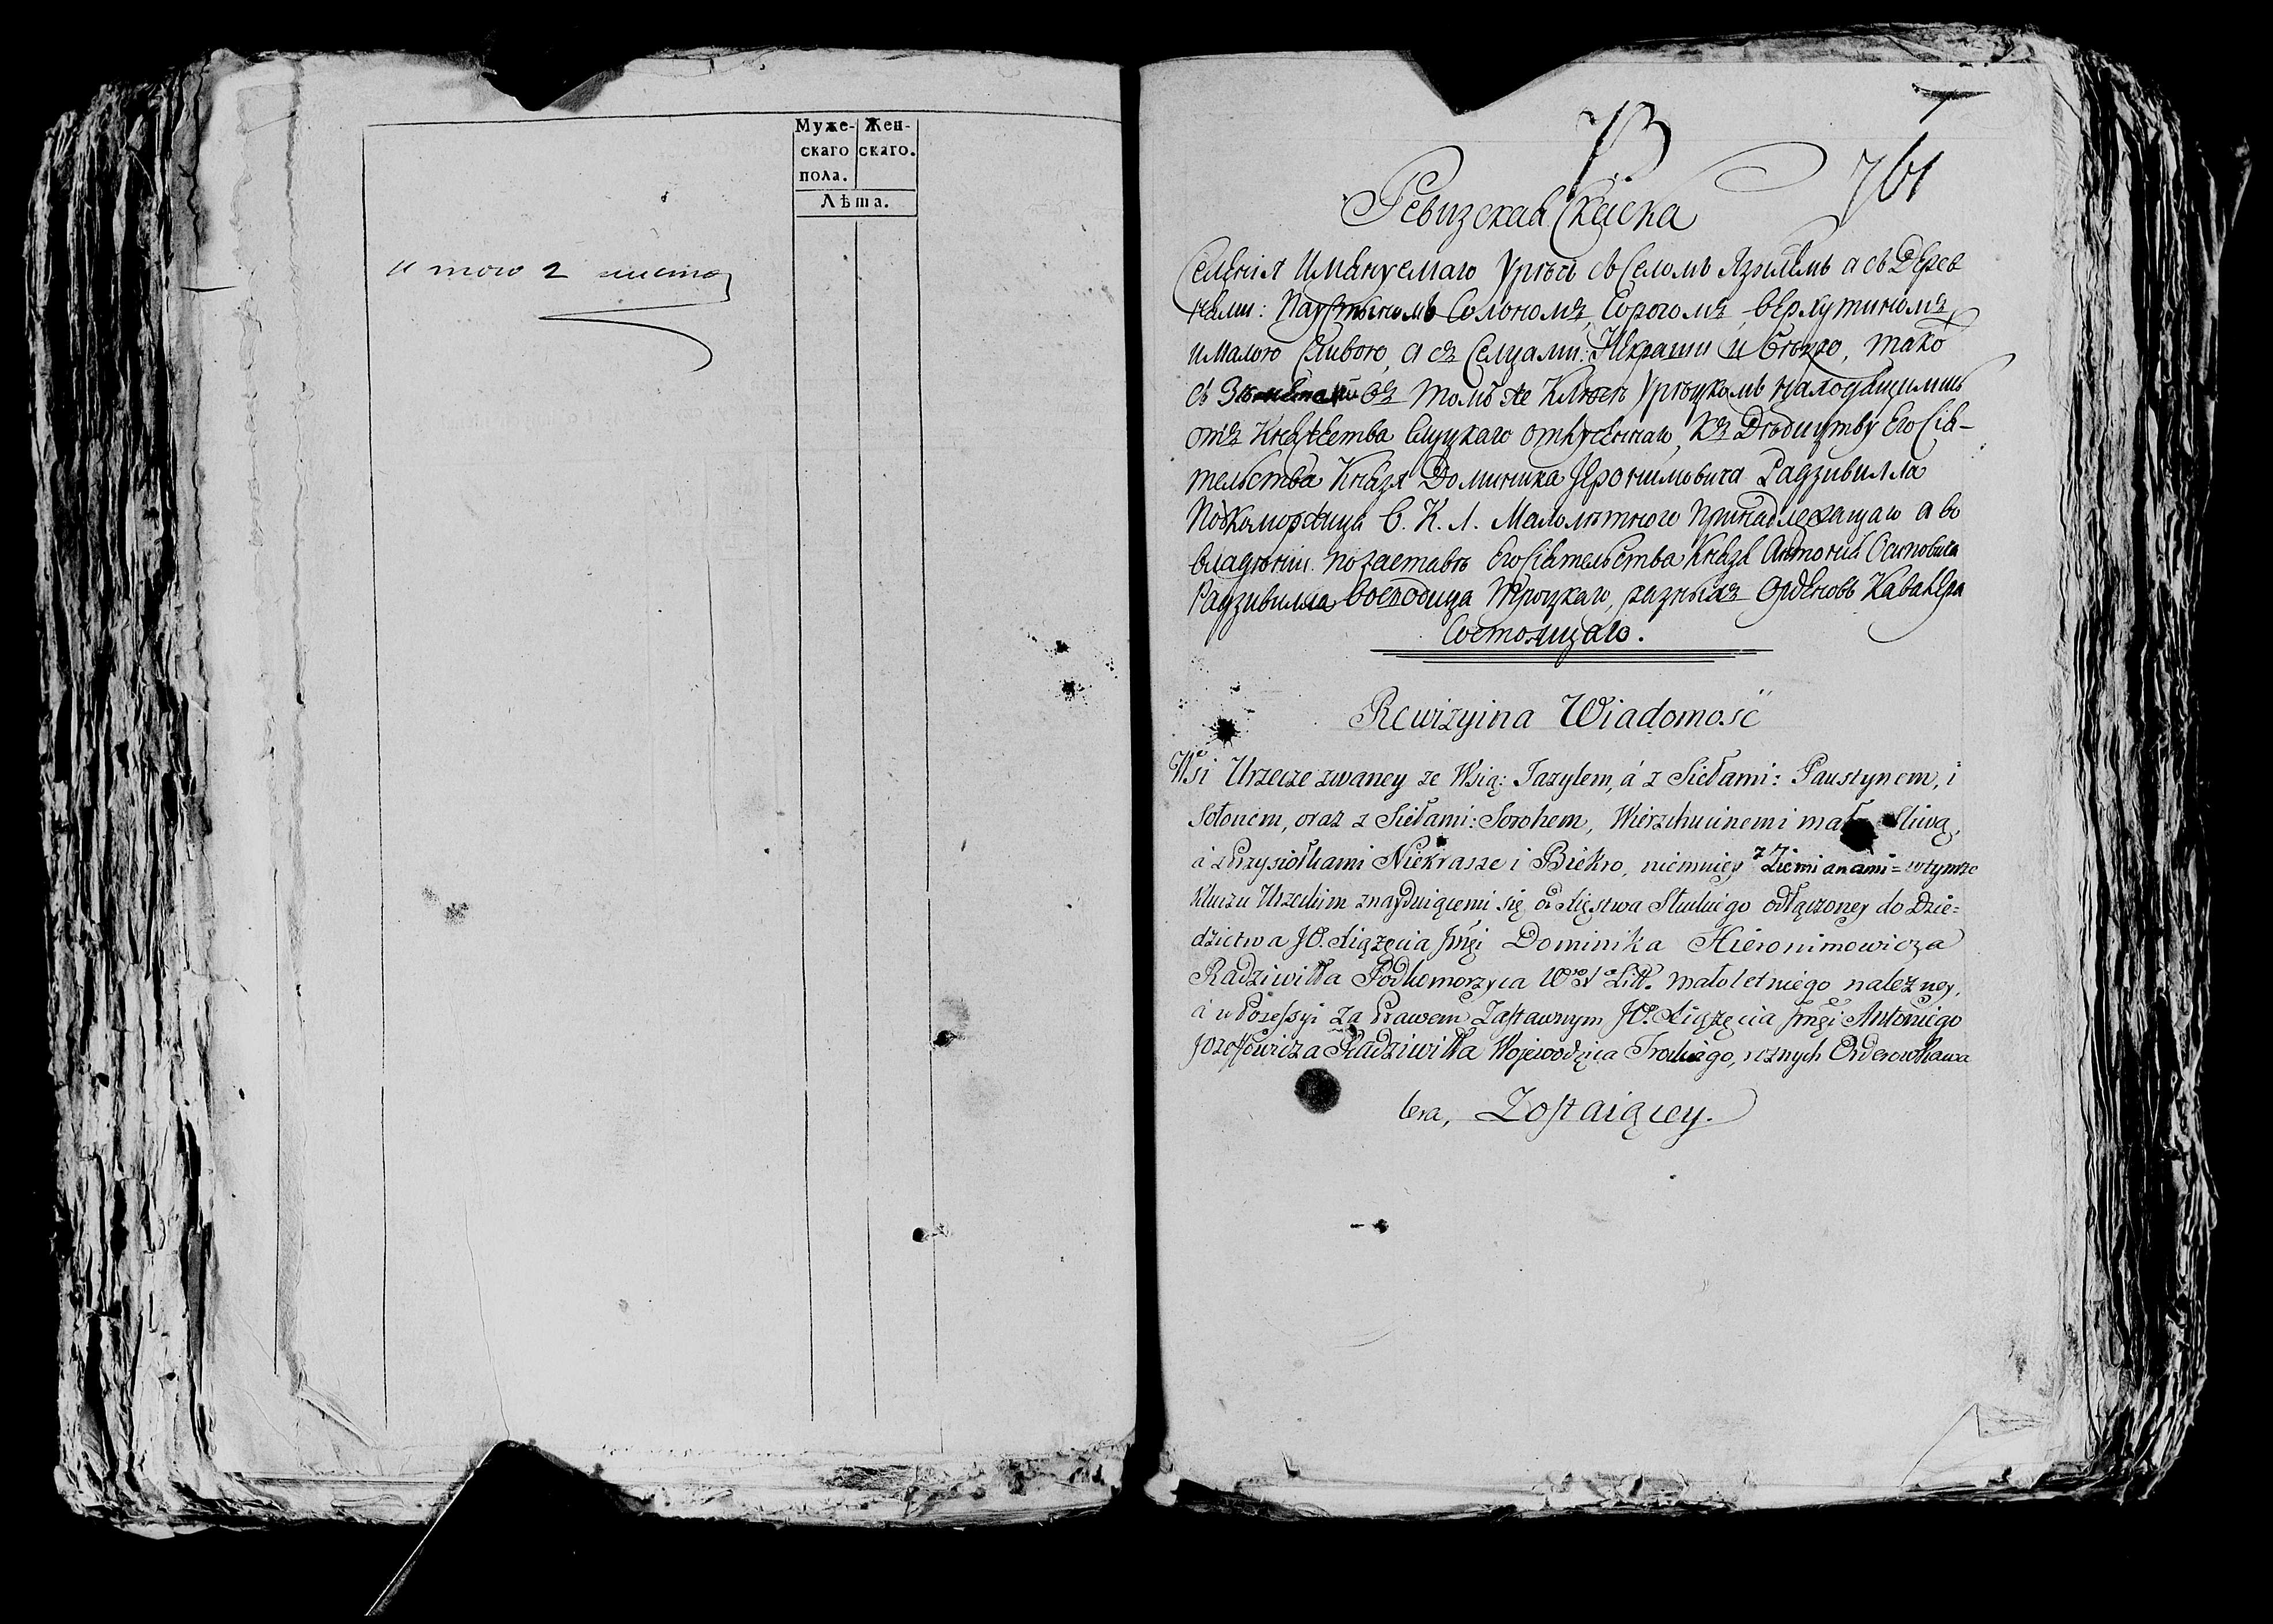 Муже- Жен-
скаго скаго.
пола.
Лѣта.
итого 2 листа
73
761
Ревизская Скаска
Селенія Имянуемаго Урѣчья съ Селомъ Язылемъ а съ Дерев
нями: Паустыномъ Солономъ, Сорогомъ, Верхутиномъ,
и Малою Сливою, а съ Селцами: Некраши и Бѣкро, тако
съ въ томъ же Ключѣ Урѣцкомъ находящимись
отъ Княжества Слуцкаго отлученнаго, къ Дѣдицтву Его Сія-
тельства Князя Доминика Іеронимовича Радзивилла
Подкоморжица В. К. Л. Малолѣтнюго принадлежащаго а во
владѣніи по заставѣ Его Сіятельства Князя Антонія Осиповича
Радзивилла Воеводица Троцкаго, разныхъ Орденовъ Кавалера
Состоящаго.
Rewizyina Wiadomość
Wsi Urzecze zwaney ze Wsią: Jazylem, á z Siełami: Paustynem, i
Sołonem, oraz z Siełami: Sorohem, Wierzchucinem i małą Sliwą,
á z Przysiołkami Niekrasze i Biekro, niemniey z Ziemianami = w tymże
Kluczu Urzeckim znayduiącemi się od Xięstwa Słuckiego odłączoney do Dzie=
dzictwa JO. Xiążęcia Jmći Dominika Hieronimowicza
Radziwiłła Podkomorzyca Wgo Xa Litt. małoletniego należney,
á w Possessyi za Prawem Zastawnym JO. Xiążęcia Jmći Antoniego
Jozeffowicza Radziwiłła Wojewodzica Trockiego, roznych Orderow Kawa
lera, Zostaiącey.